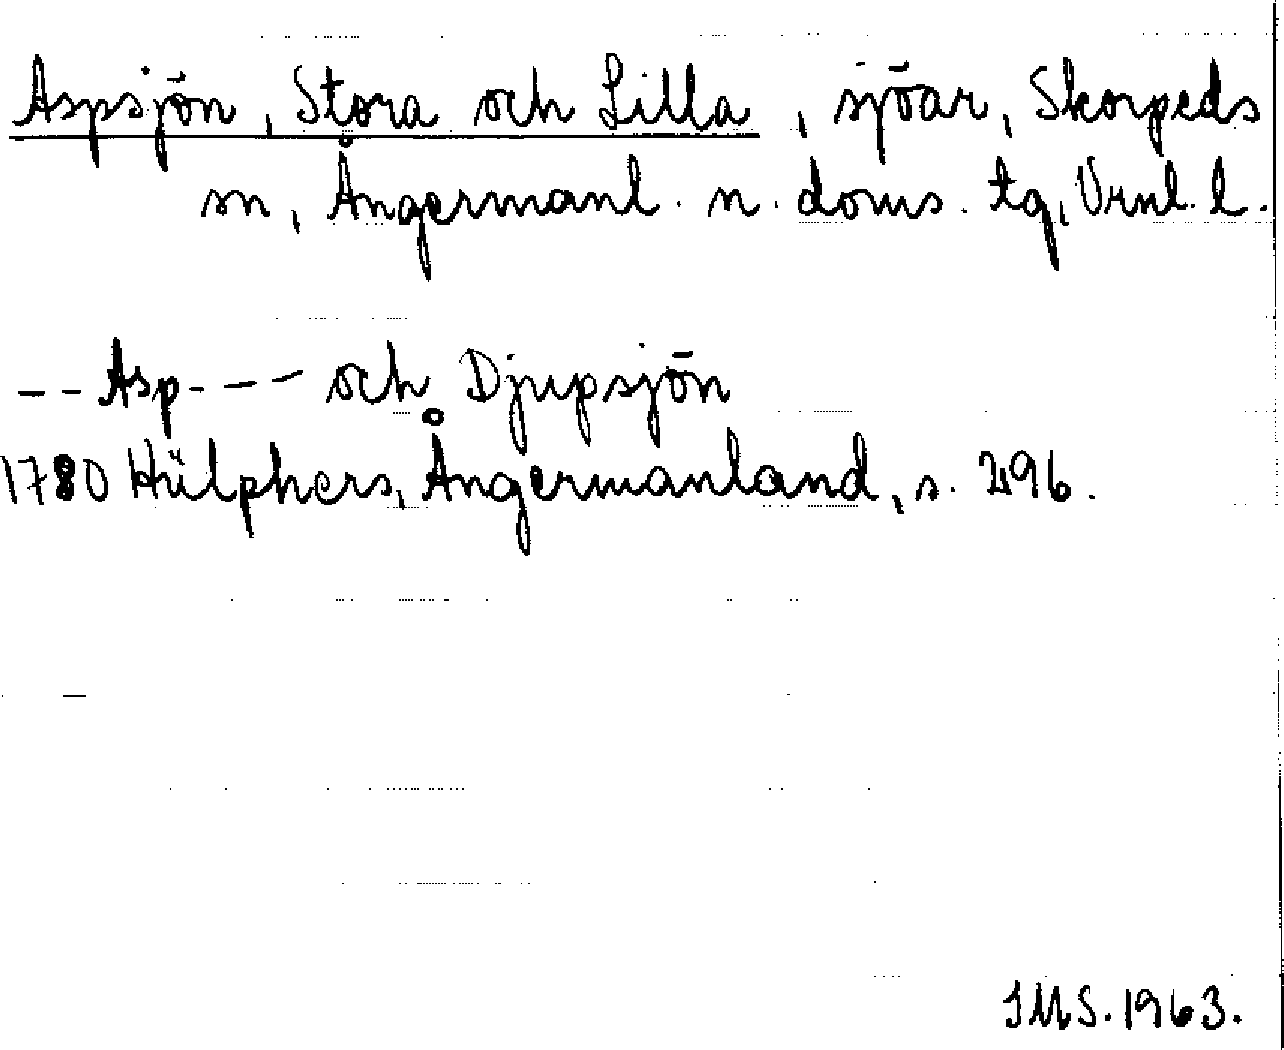 Aspsjön, Stora och Lilla, sjöar, Skorpeds
sn, Ångermanl. n. doms. tg, Vrnl. l.
--Asp---- och Djupsjön
1780 Hülphers, Ångermanland, s. 296.
IMS. 1963.